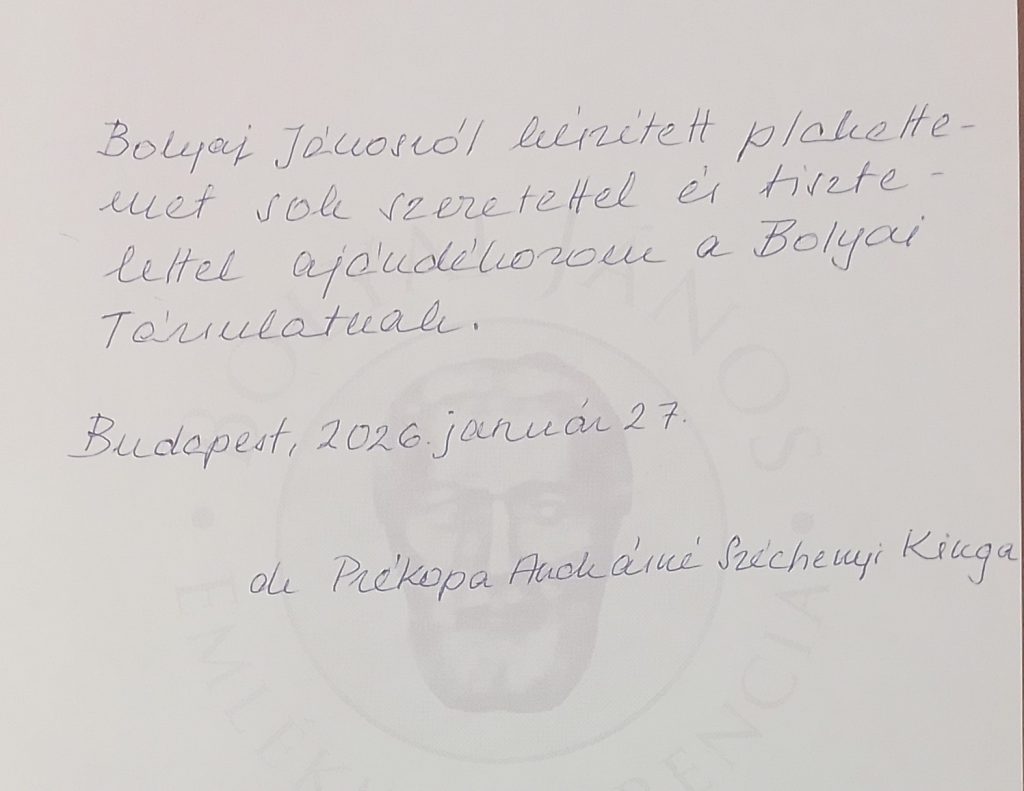 Bolyai Jánosról készített plakette-
met sok szeretettel és tiszte-
lettel ajándékozom a Bolyai
Társulatnak.
Budapest, 2026. január 27.
dr Prékopa Andrásné Széchenyi Kinga
BOLYAI JÁNOS
EMLÉKKONFERENCIA